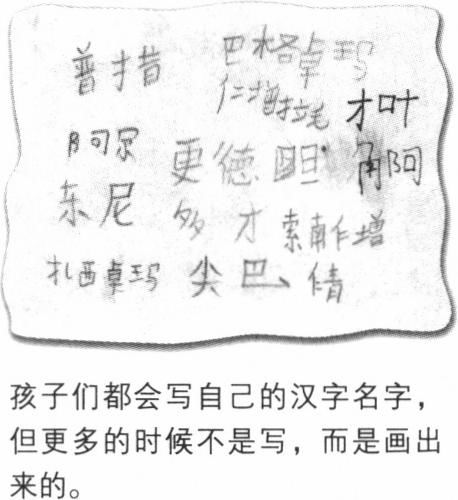 普措
巴格卓玛
仁增拉毛
才叶
阿尕
更德
角阿
东尼
多才
索南仁增
扎西卓玛
尖巴
倩
孩子们都会写自己的汉字名字，
但更多的时候不是写，而是画出
来的。